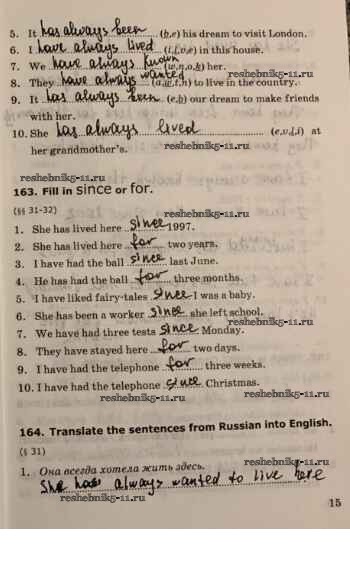 5. It has always been (b,e) his dream to visit London.
6. I have always lived (i,l,v,e) in this house.
7. We have always known (w,n,o,k) her.
8. They have always wanted (a,w,t,n) to live in the country.
reshebnik5-11.ru
9. It has always been (e,b) our dream to make friends
with her.
10. She has always lived (e,v,l,i) at
her grandmother's.
reshebnik5-11.ru
reshebnik5-11.ru
163. Fill in since or for.
(§§ 31-32)
reshebnik5-11.ru
1. She has lived here since 1997.
2. She has lived here for two years.
3. I have had the ball since last June.
4. He has had the ball for three months.
5. I have liked fairy-tales since I was a baby.
6. She has been a worker since she left school.
reshebnik5-11.ru
7. We have had three tests since Monday.
8. They have stayed here for two days.
9. I have had the telephone for three weeks.
10. I have had the telephone since Christmas.
reshebnik5-11.ru
reshebnik5-11.ru
164. Translate the sentences from Russian into English.
(§ 31)
reshebnik5-11.ru
1. Она всегда хотела жить здесь.
She has always wanted to live here
reshebnik5-11.ru
15